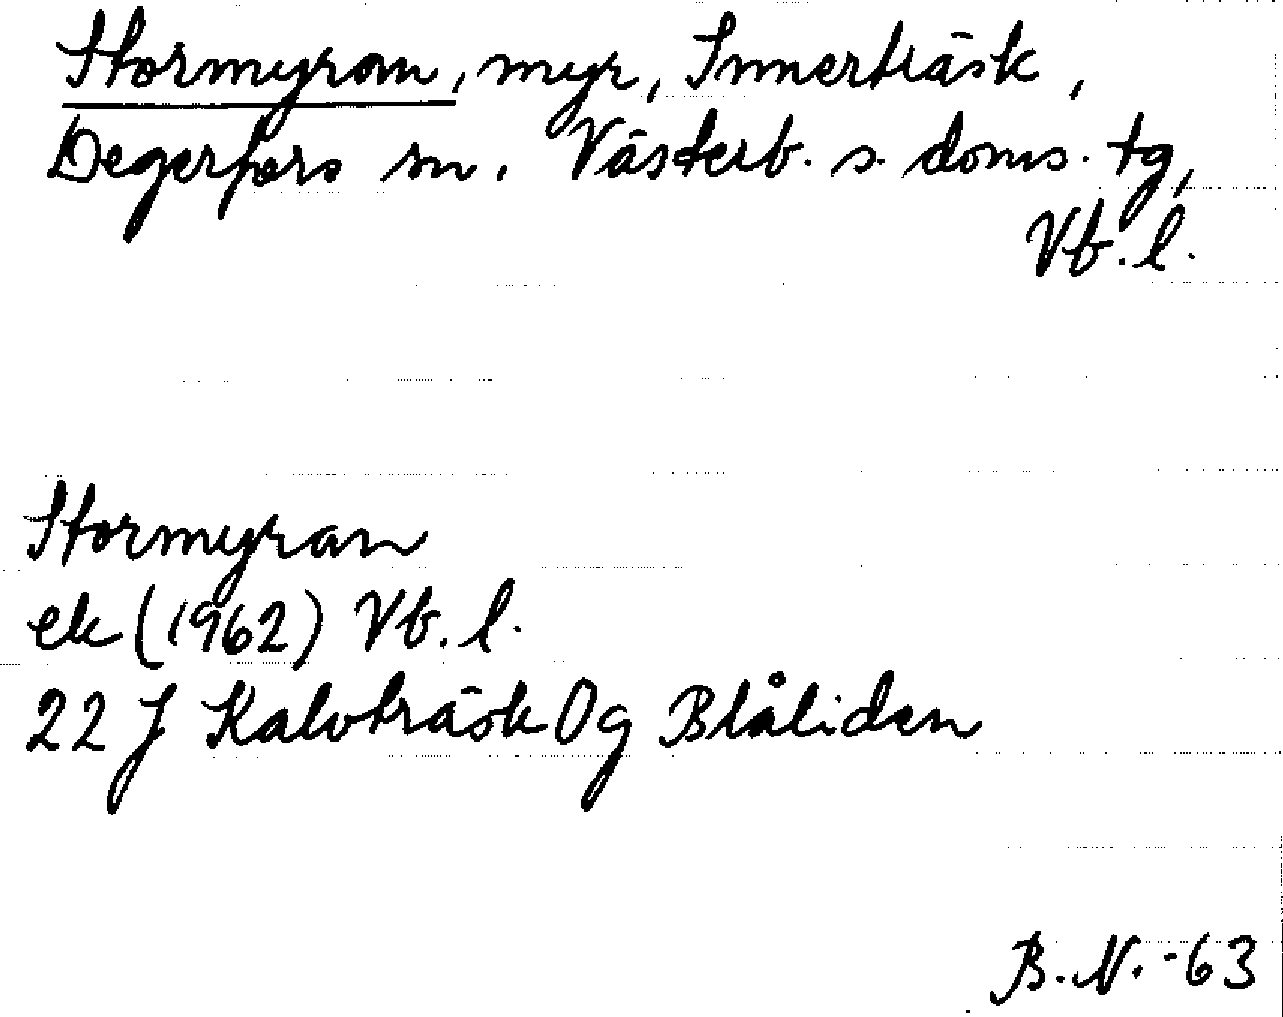 Stormyran, myr, Innerträsk,
Degerfors sn. Västerb. s. doms. tg,
Vb. l.
Stormyran
ek (1962) Vb. l.
22 J Kalvträsk 0g Blåliden
B. N. -63